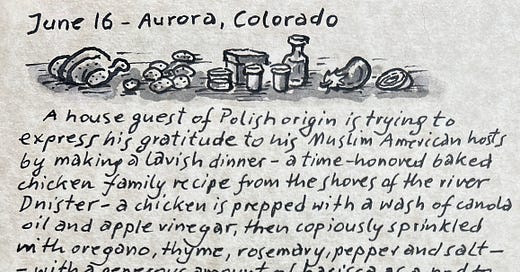 June 16 – Aurora, Colorado
A house guest of Polish origin is trying to
express his gratitude to his Muslim American hosts
by making a lavish dinner – a time-honored baked
chicken family recipe from the shores of the river
Dnister – a chicken is prepped with a wash of canola
oil and apple vinegar, then copiously sprinkled
with oregano, thyme, rosemary, pepper and salt –
– with a generous amount of harissa as a nod to